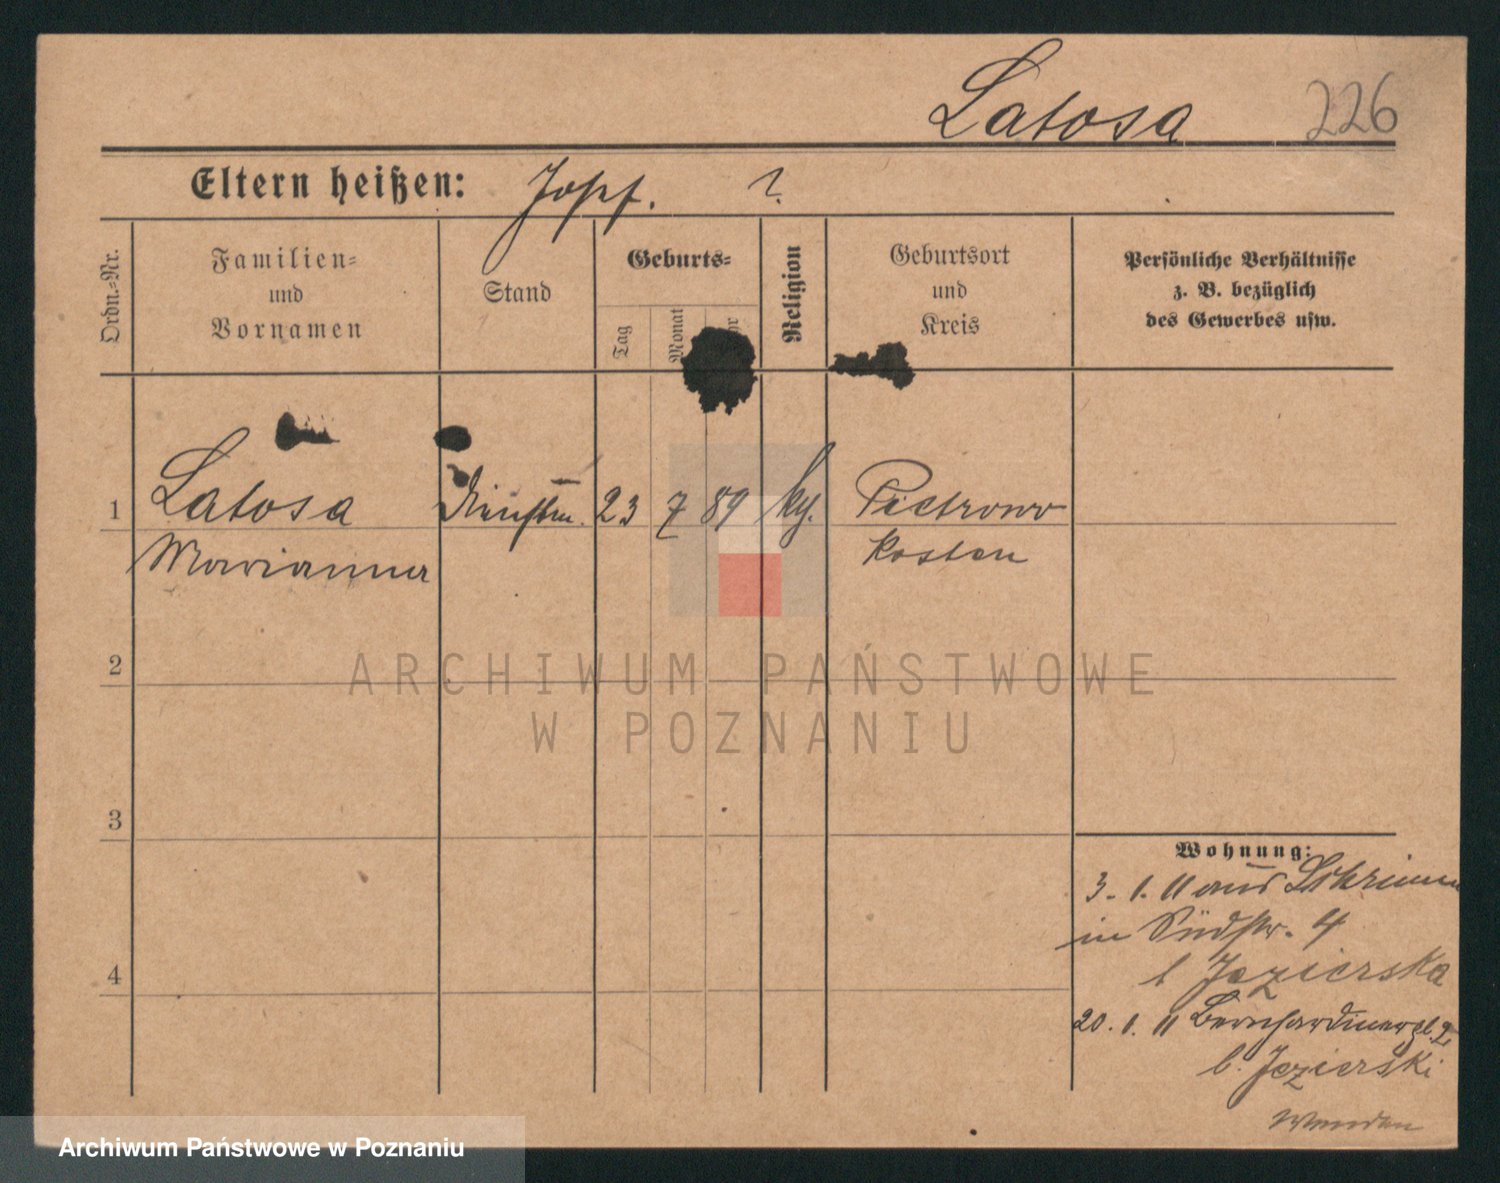 Latosa 226
Eltern heißen: Josef. ?
Ordn.-Nr.
Familien-
und
Vornamen
Stand
Geburts-
Tag
Monat
Religion
Geburtsort
und
Kreis
Persönliche Verhältnisse
z. B. bezüglich
des Gewerbes usw.
1 Latosa 23 7 89
Marianna Kosten
2
3
4
Wohnung:
3. 1. 11 aus Schrimm
in Südstr. 4
b Jezierska
20. 1. 11 Bernhardinerpl. 2
b. Jezierski
ARCHIWUM PAŃSTWOWE
W POZNANIU
Archiwum Państwowe w Poznaniu